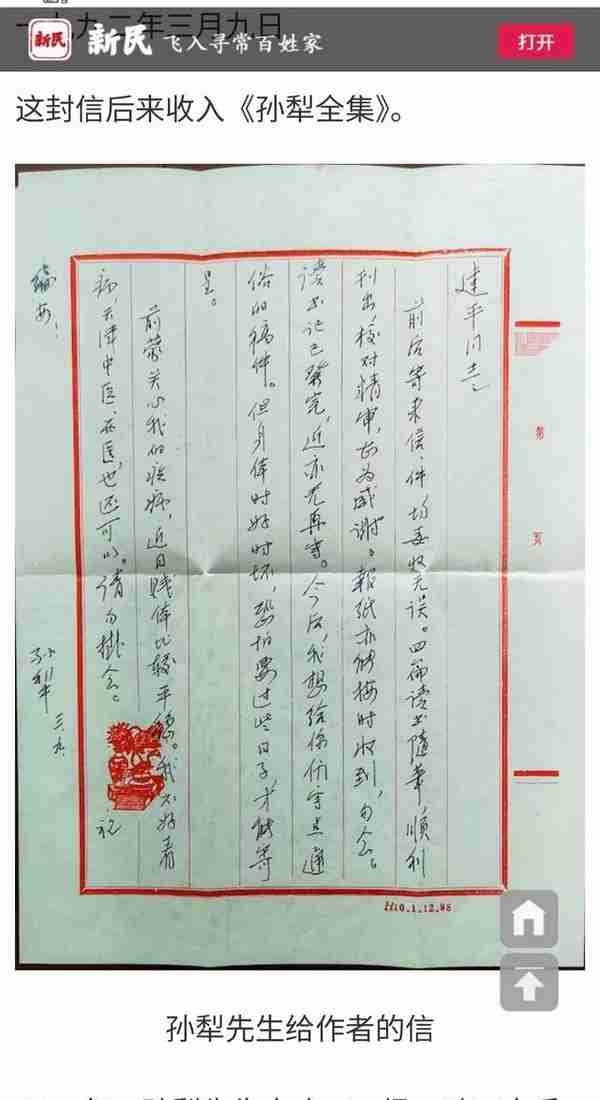 一九九二年三月九日
新民
新民 飞入寻常百姓家
打开
这封信后来收入《孙犁全集》。
建平同志:
前后寄来信、件均妥收无误。四篇读书随笔顺利
刊出,校对精审,甚为感谢。报纸亦能按时收到,勿念。
读书记已发完,近亦无再写。今后,我想给你们写点通
俗的稿件。但身体时好时坏,恐怕要过些日子,才能寄
呈。
前蒙关心我的疾病,近日贱体比较平稳。我不好看
病,天津中医、西医,也还可以。请勿挂念。
祝
编安!
孙犁
三、九
第
页
H10.1.12.88
孙犁先生给作者的信